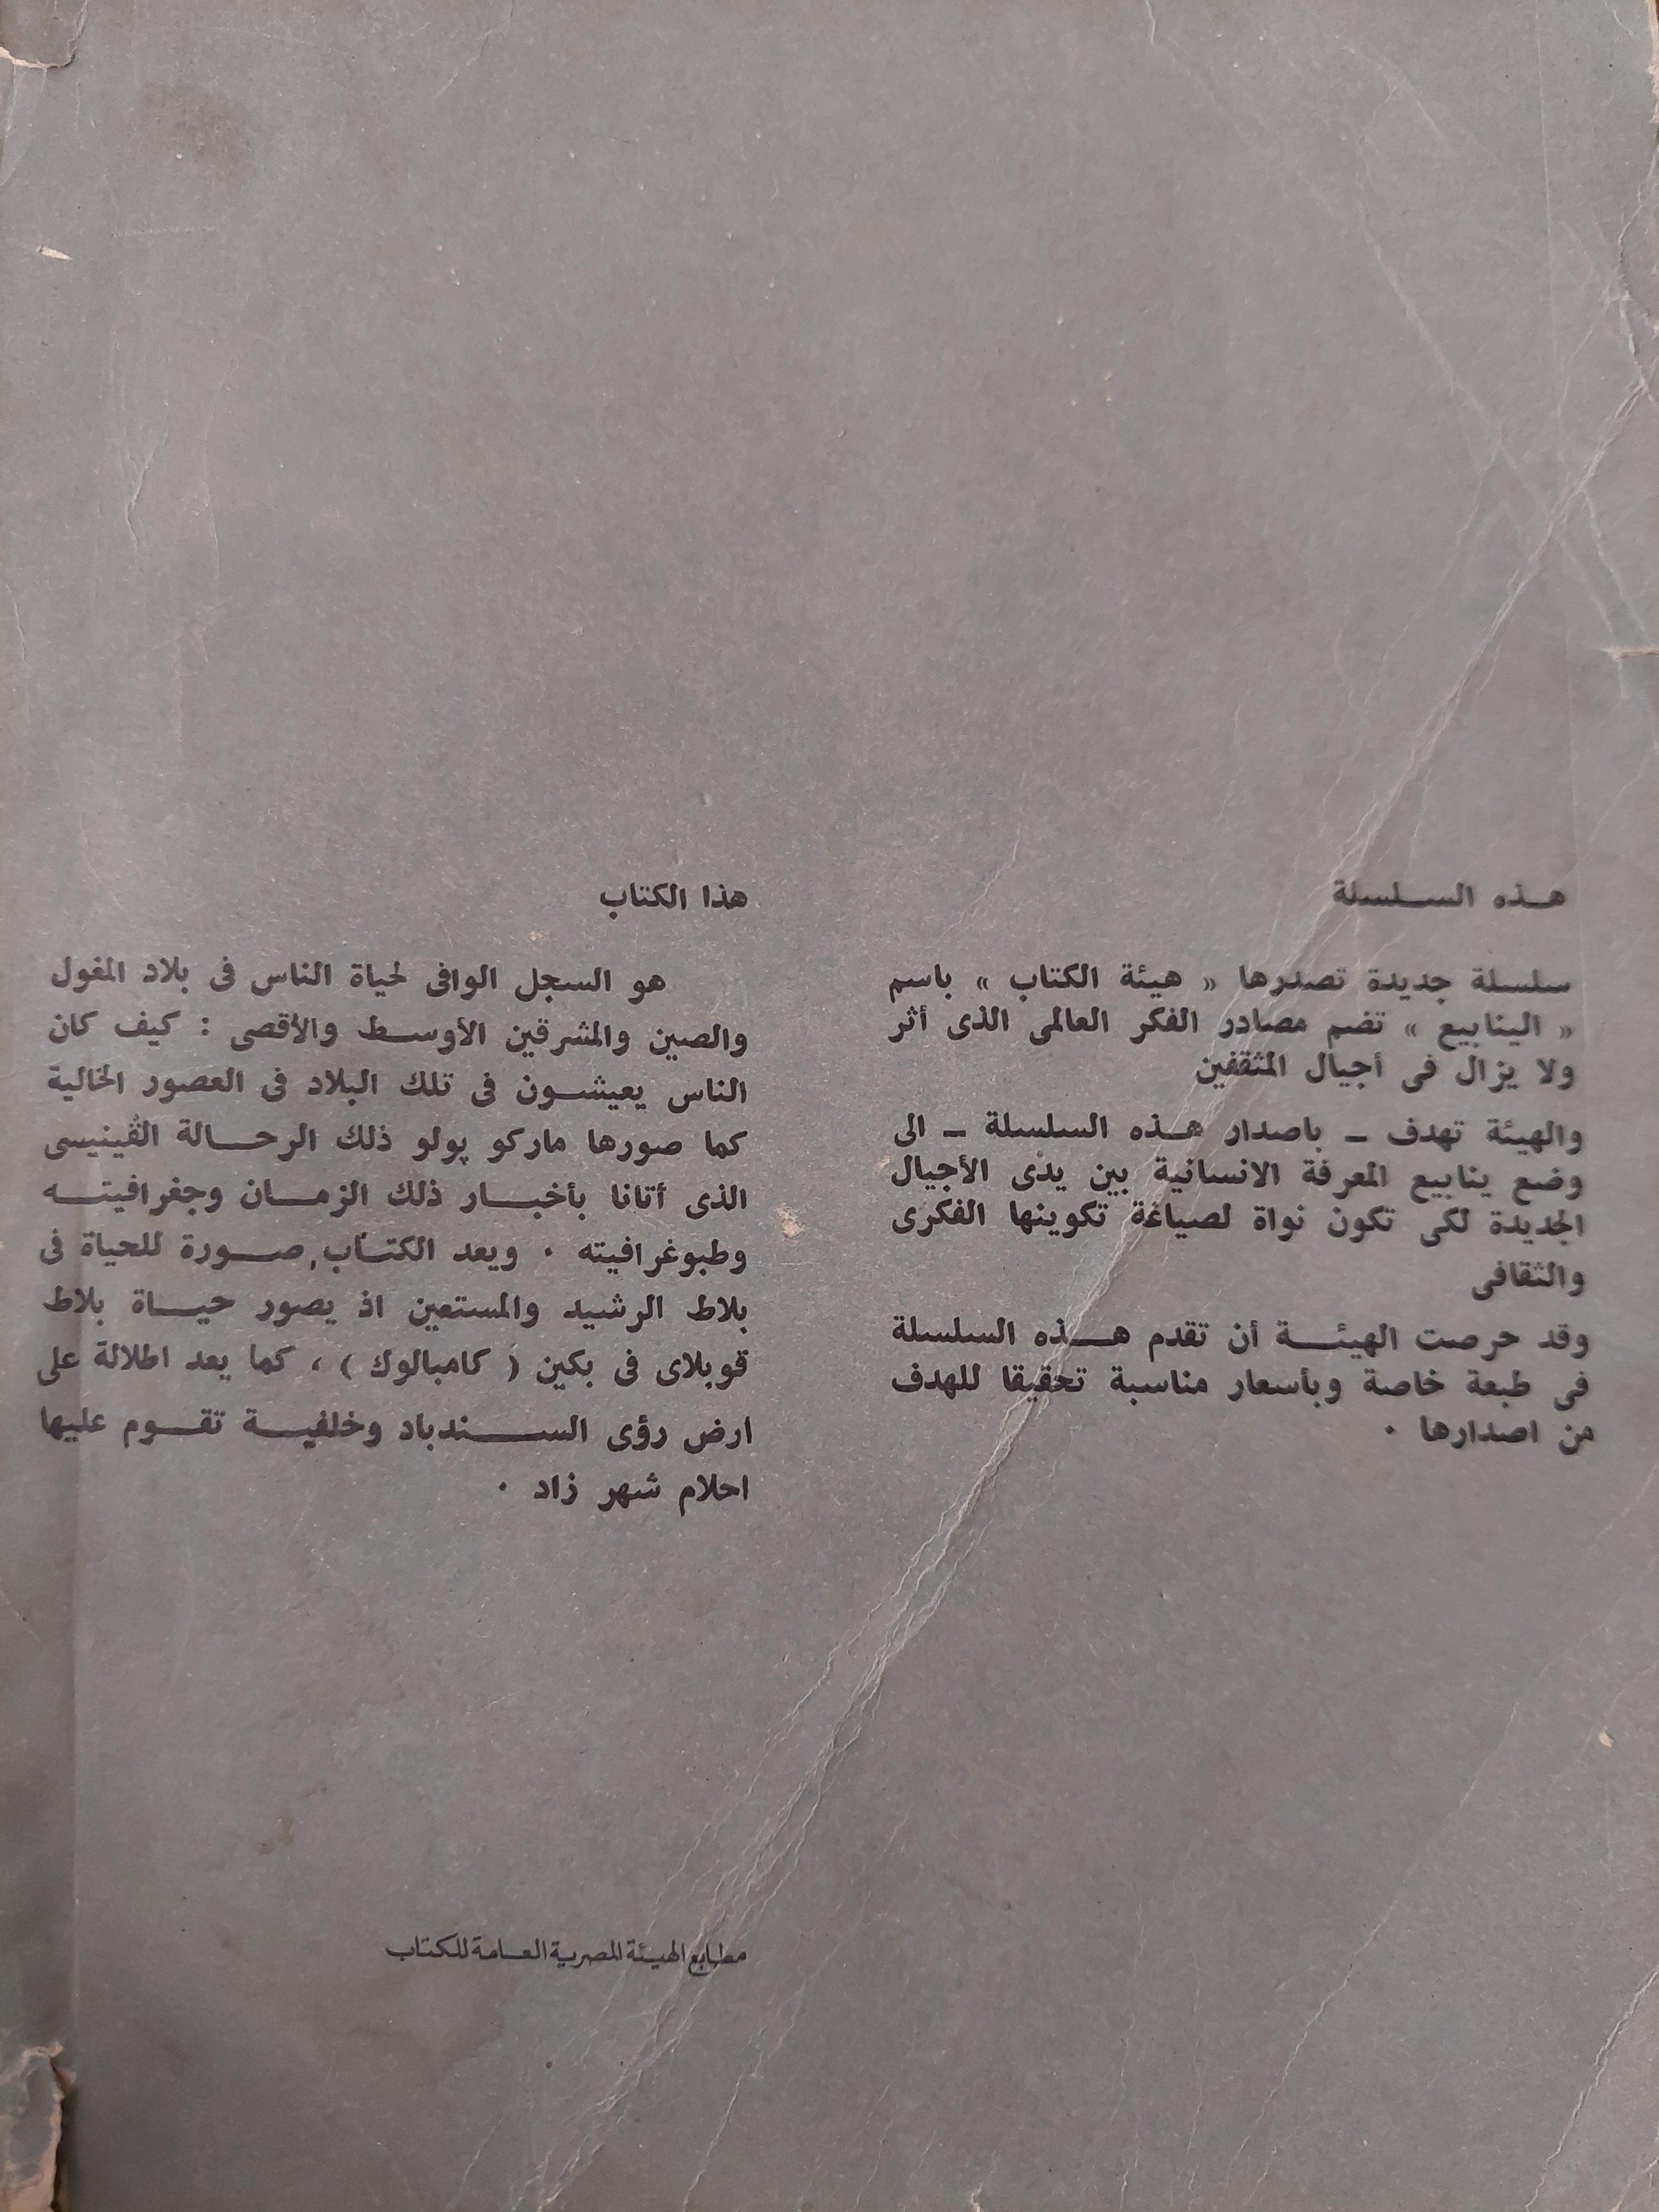 هذه السلسلة
سلسلة جديدة تصدرها « هيئة الكتاب » باسم
« الينابيع » تضم مصادر الفكر العالمى الذى أثر
ولا يزال فى أجيال المثقفين
والهيئة تهدف ـ باصدار هذه السلسلة ـ الى
وضع ينابيع المعرفة الانسانية بين يدى الأجيال
الجديدة لكى تكون نواة لصياغة تكوينها الفكرى
والثقافى
وقد حرصت الهيئة أن تقدم هذه السلسلة
فى طبعة خاصة وبأسعار مناسبة تحقيقا للهدف
من اصدارها ٠
هذا الكتاب
هو السجل الوافى لحياة الناس فى بلاد المغول
والصين والمشرقين الأوسط والأقصى : كيف كان
الناس يعيشون فى تلك البلاد فى العصور الخالية
كما صورها ماركو پولو ذلك الرحالة الڤينيسى
الذى أتانا بأخبار ذلك الزمان وجغرافيته
وطبوغرافيته ٠ ويعد الكتاب صورة للحياة فى
بلاط الرشيد والمستعين اذ يصور حياة بلاط
قوبلاى فى بكين ( كامبالوك ) ، كما يعد اطلالة على
ارض رؤى السندباد وخلفية تقوم عليها
احلام شهر زاد ٠
مطابع الهيئة المصرية العامة للكتاب